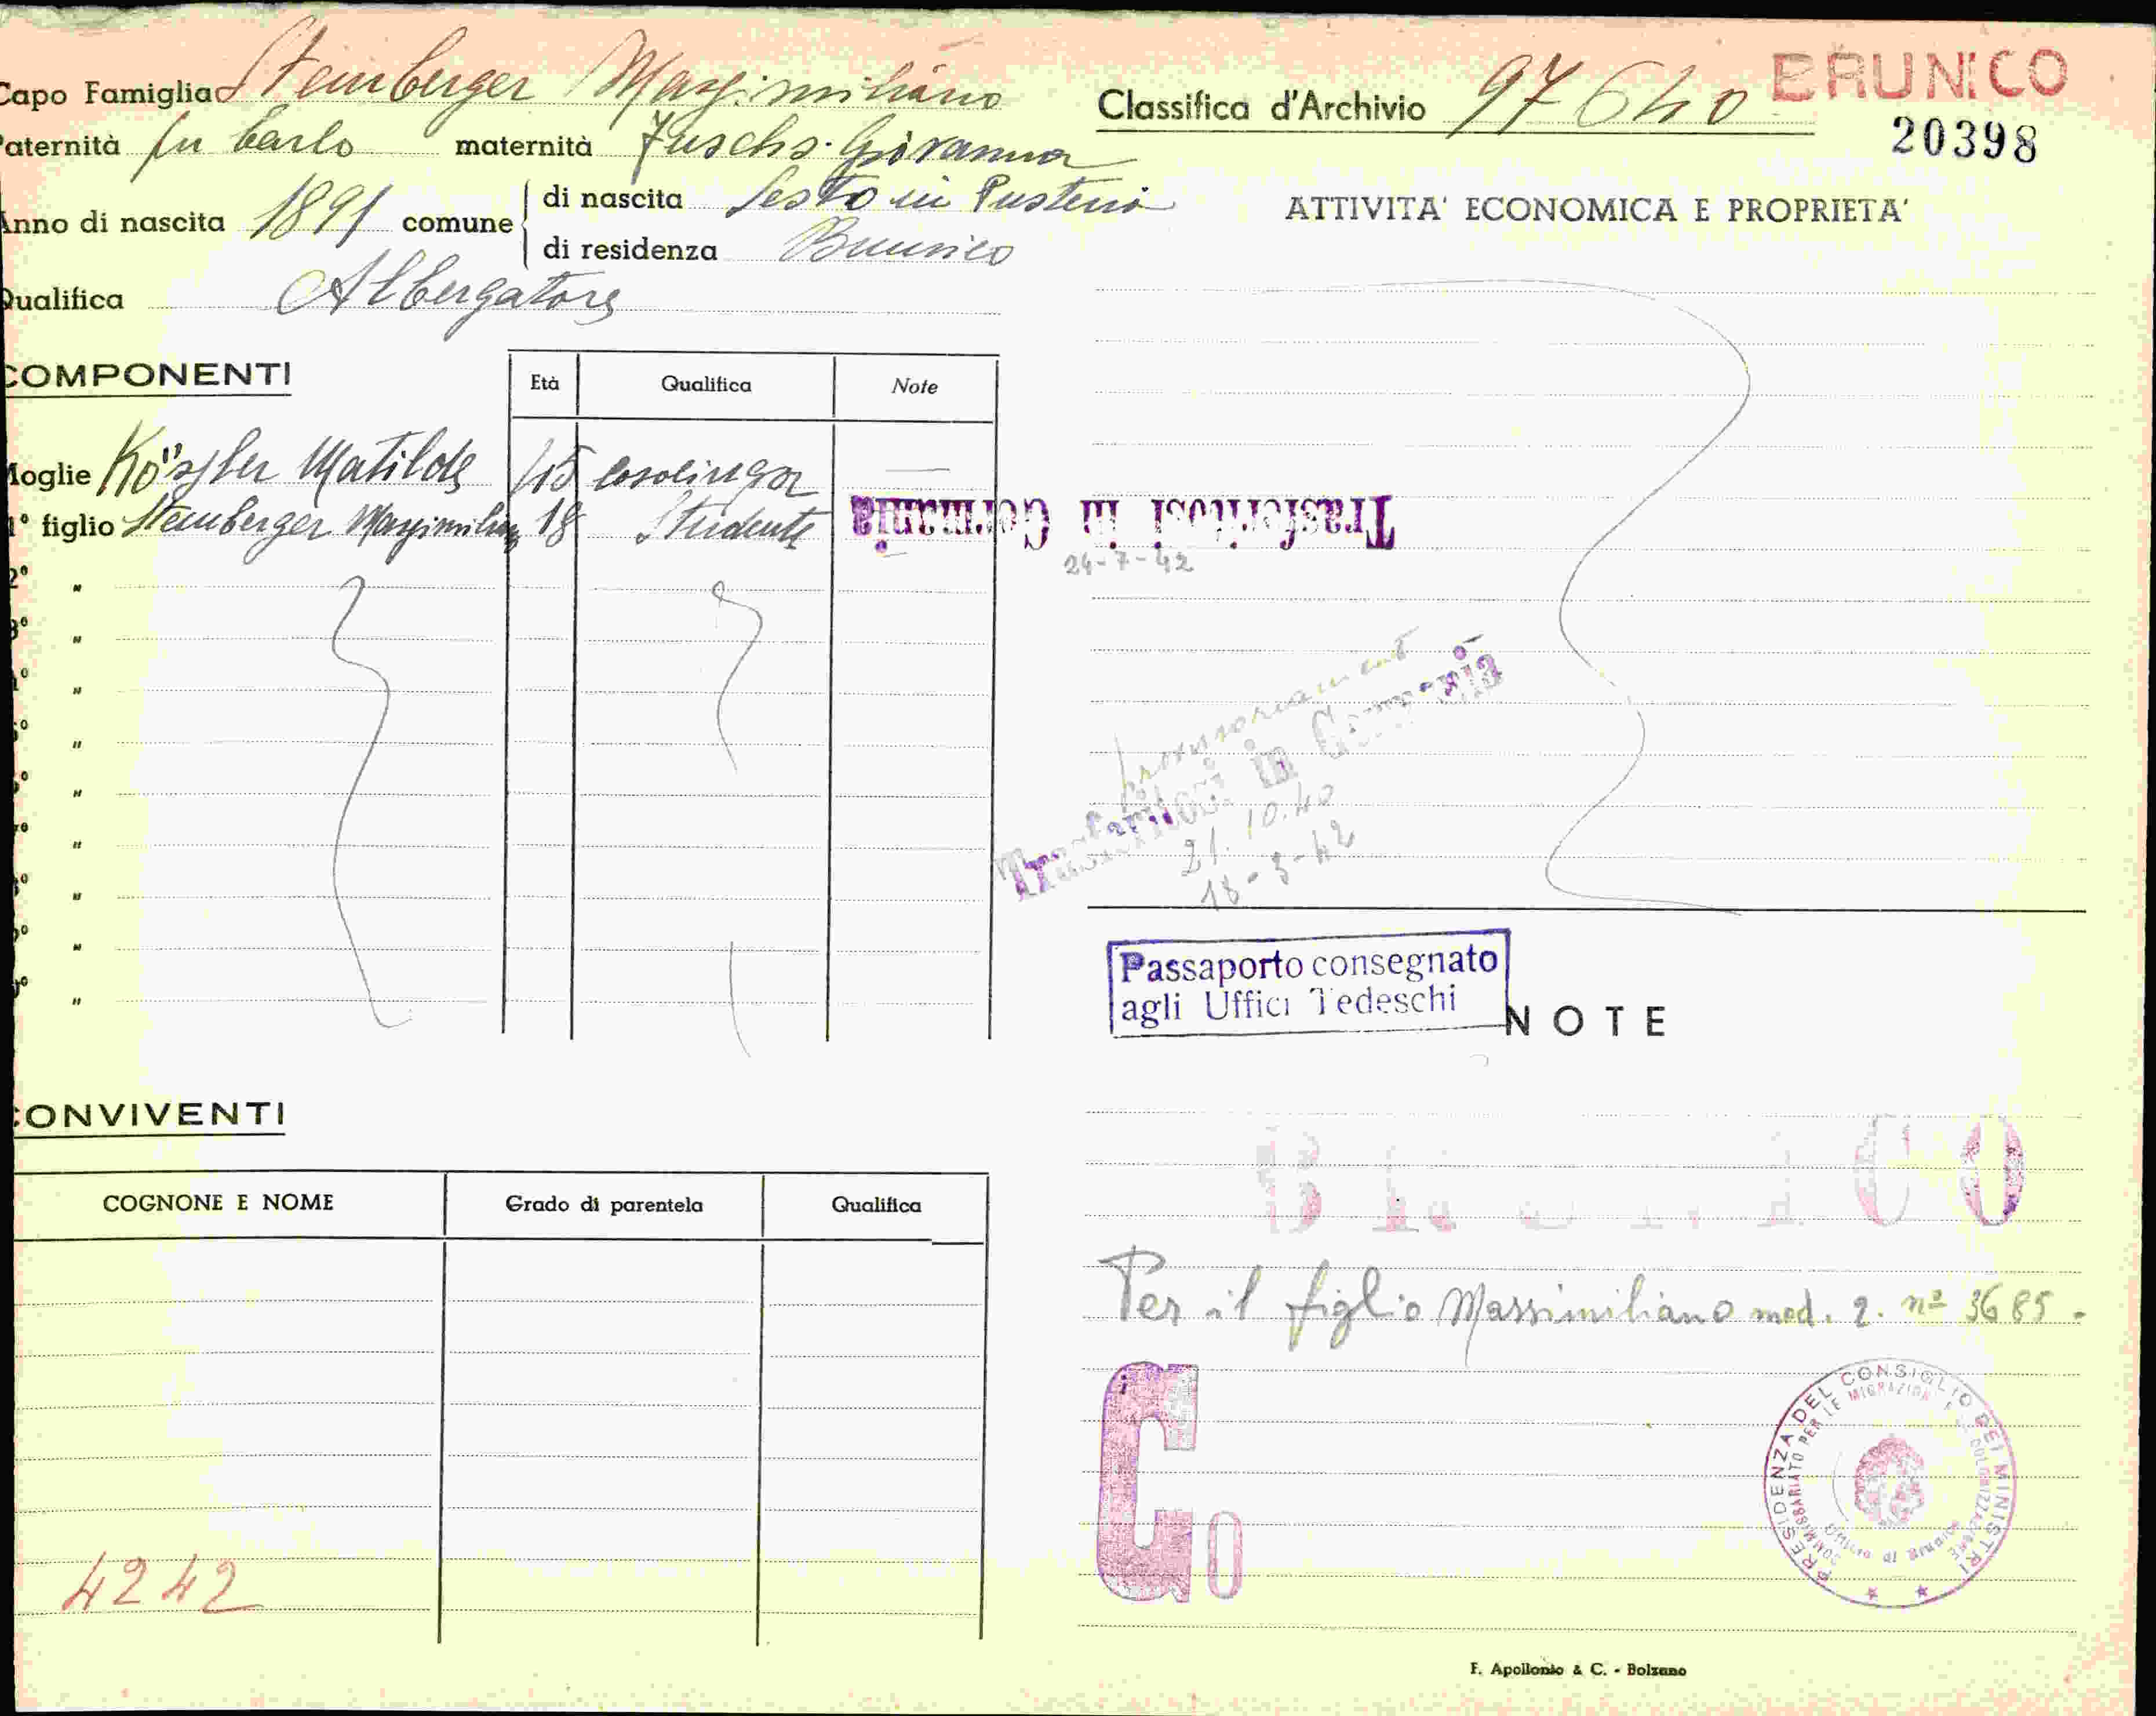 Capo Famiglia Steinberger Massimiliano
Paternità fu Carlo maternità Fuschs Giovanna
Anno di nascita 1891 comune di nascita Sesto in Pusteria
di residenza Brunico
Qualifica Albergatore
Classifica d'Archivio 97640 BRUNICO
20398
ATTIVITA' ECONOMICA E PROPRIETA'
COMPONENTI
Età Qualifica Note
Moglie Matilde 45 casalinga
1° figlio Steinberger Massimiliano 18 Studente
Trasferitosi in Germania
24-7-42
2° "
3° "
4° "
5° "
6° "
7° "
8° "
9° "
10° "
Provvisoriamente
Trasferitosi in Germania
21.10.40
Passaporto consegnato
agli Uffici Tedeschi
NOTE
CONVIVENTI
COGNONE E NOME Grado di parentela Qualifica
4242
BRUNICO
Per il figlio Massimiliano mod. 2. nº 3685-
G0
PRESIDENZA DEL CONSIGLIO DEI MINISTRI
COMMISSARIATO PER LE MIGRAZIONI E LA COLONIZZAZIONE
Ufficio di Brunico
F. Apollonio & C. - Bolzano